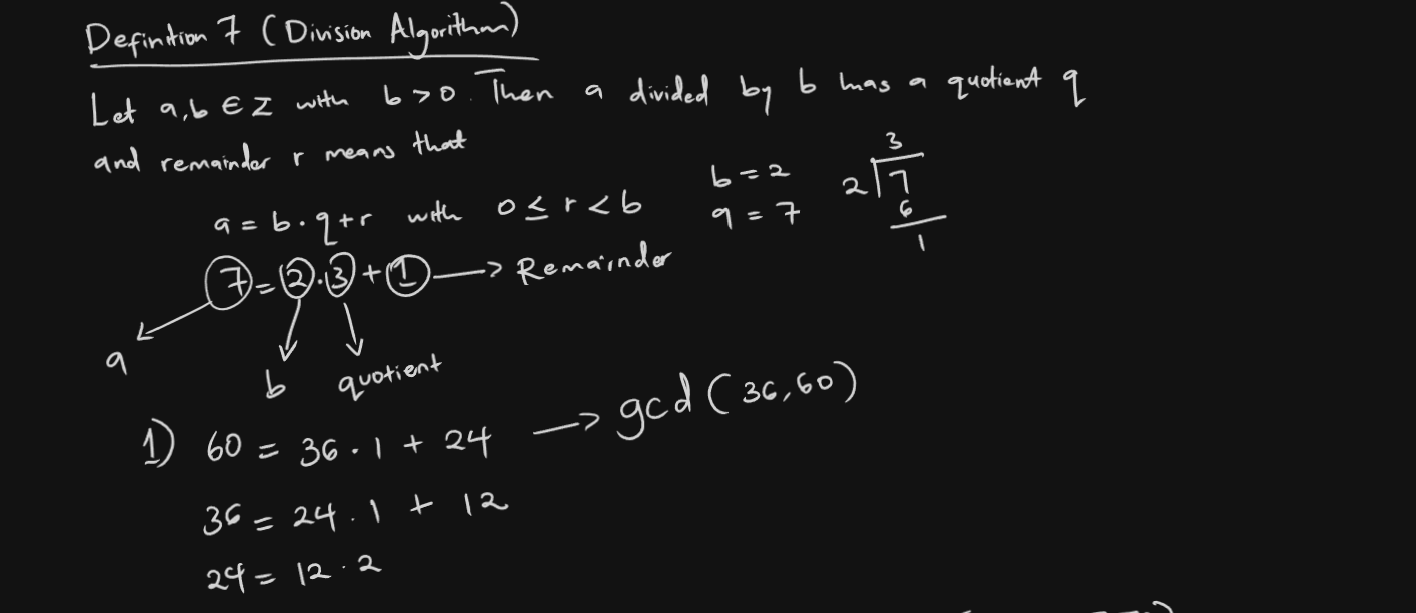 Definition 7 (Division Algorithm)
Let a,b ∈ Z with b > 0. Then a divided by b has a quotient q
and remainder r means that
a = b · q + r with 0 ≤ r < b
b = 2
a = 7
3
2 7
6
1
7 = 2 · 3 + 1 → Remainder
a
b quotient
1) 60 = 36 · 1 + 24 → gcd (36,60)
36 = 24 · 1 + 12
24 = 12 · 2